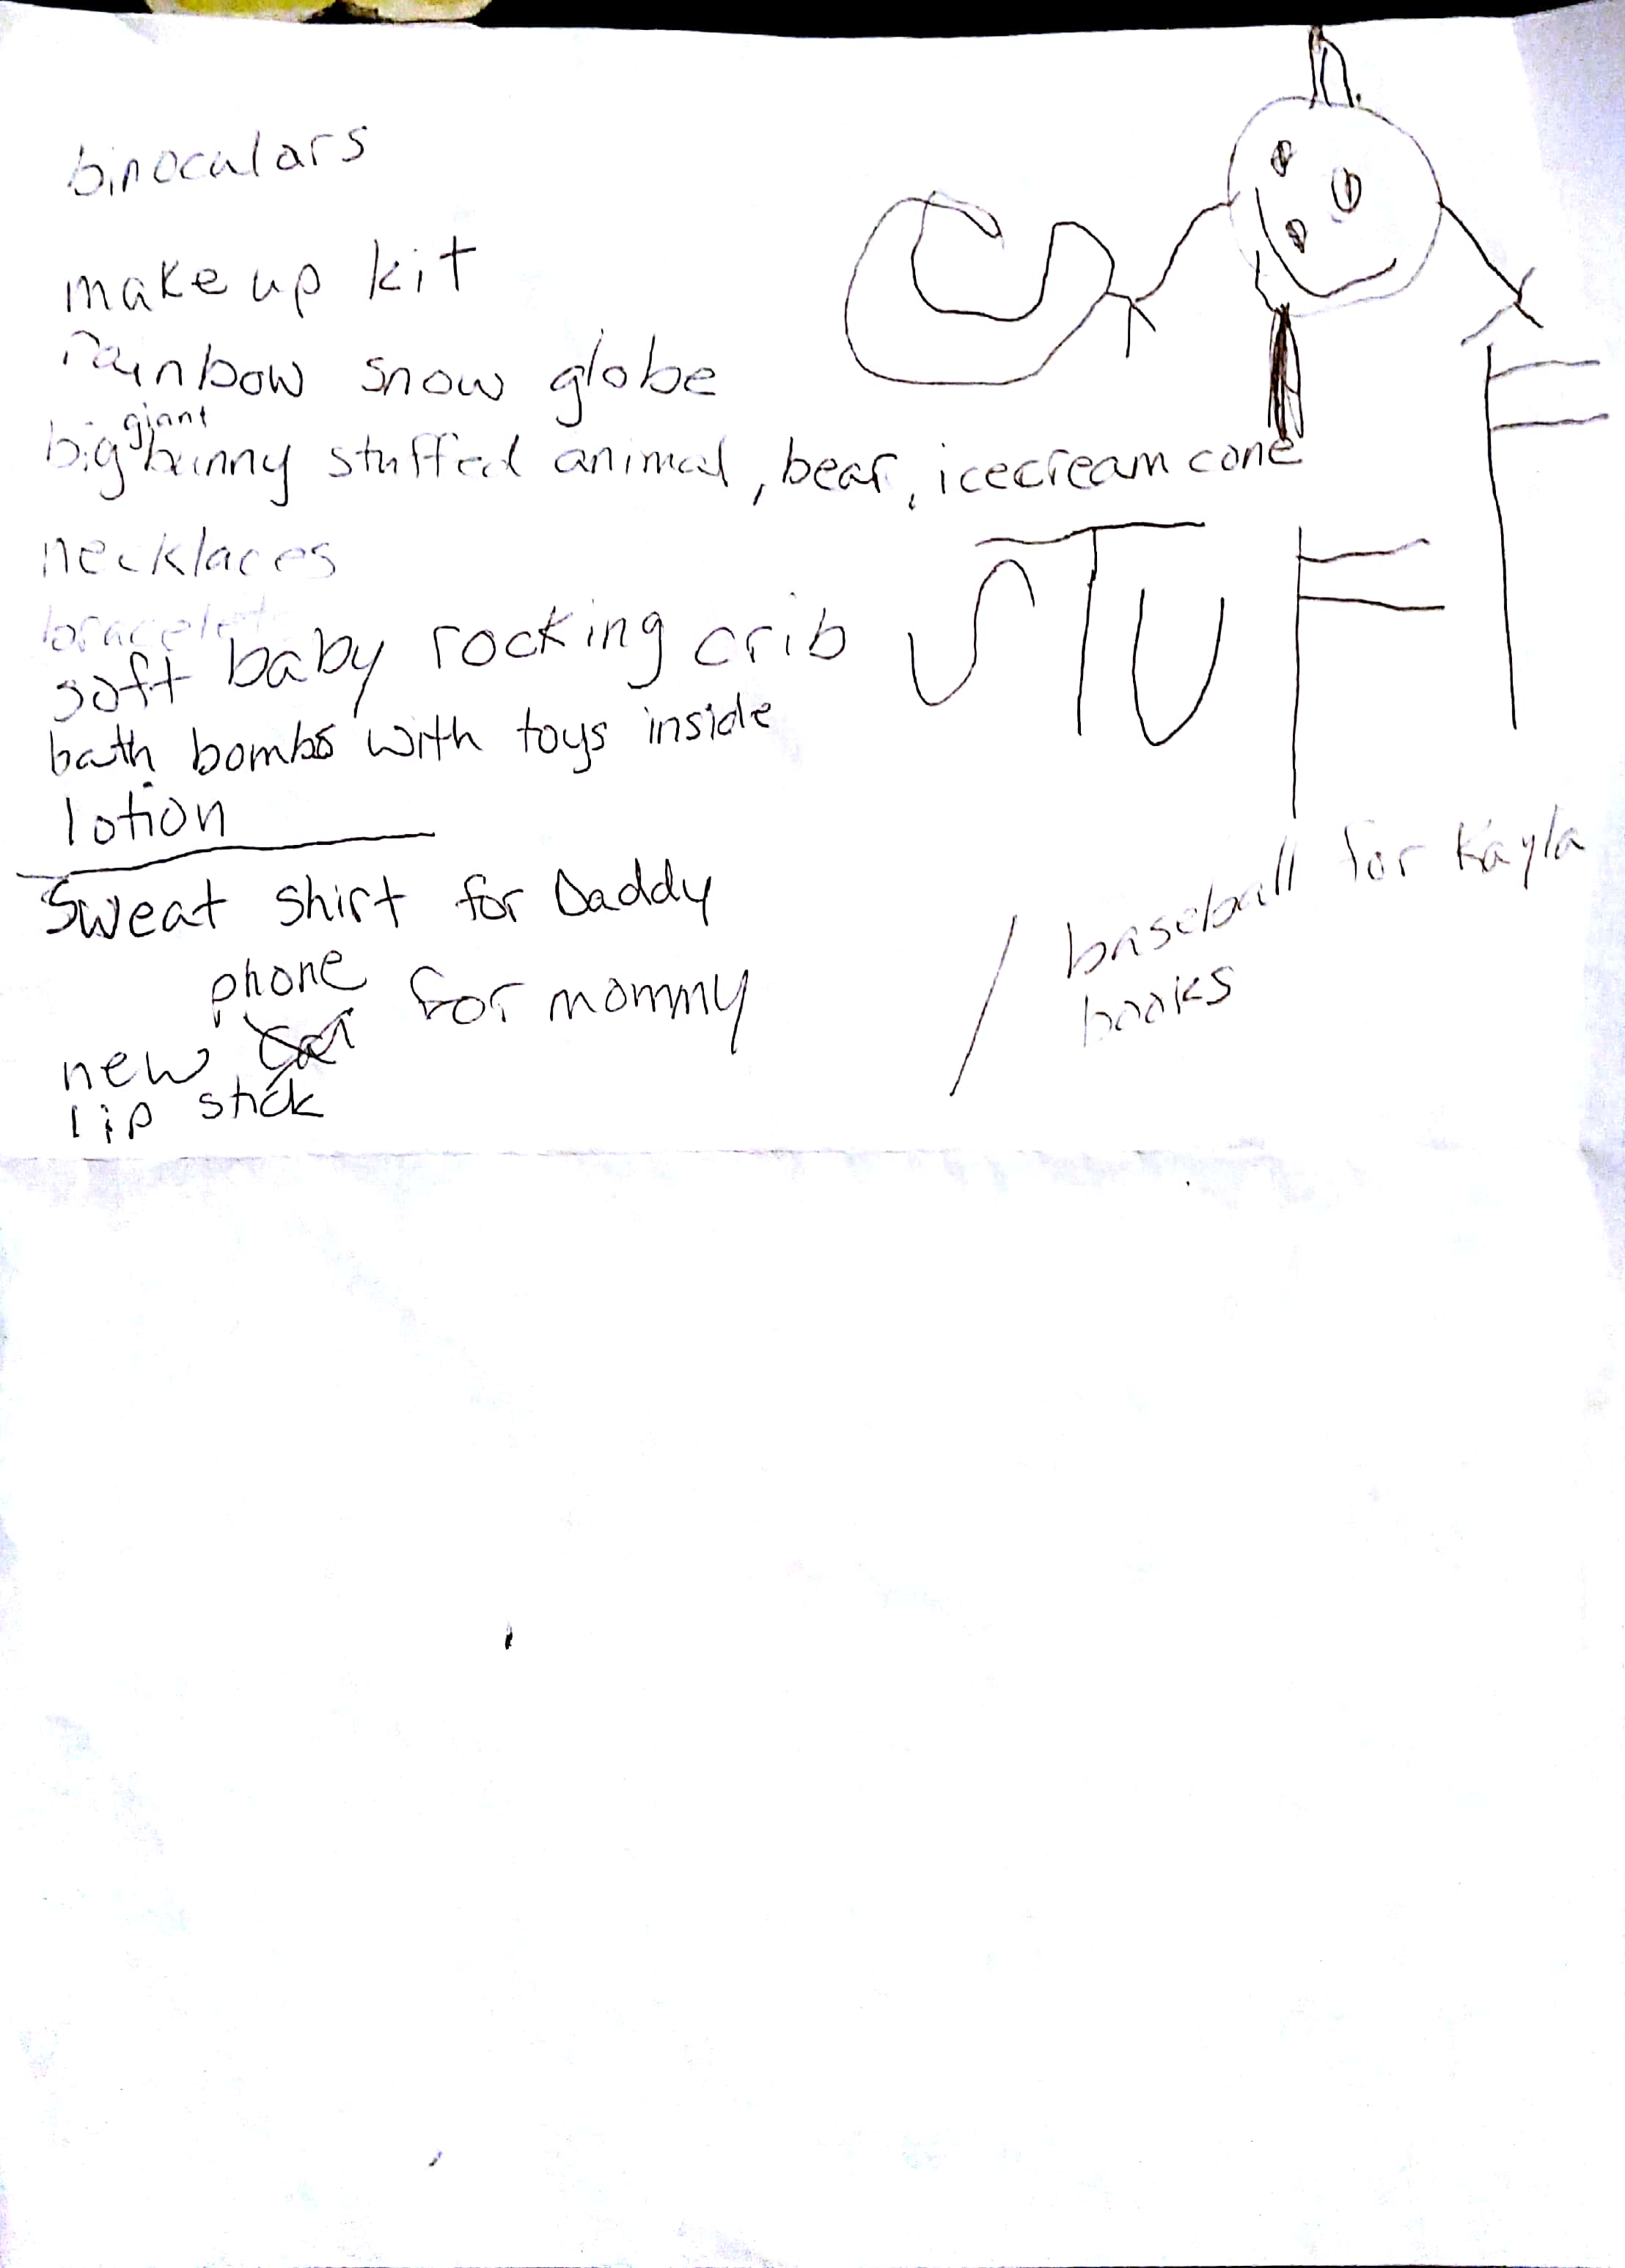 binoculars
make up kit
rainbow snow globe
giant
big bunny stuffed animal, bear, icecream cone
necklaces
bracelet
soft baby rocking crib
bath bombs with toys inside
lotion
STUFF
Sweat shirt for Daddy
phone
new car for mommy
lip stick
baseball for Kayla
books